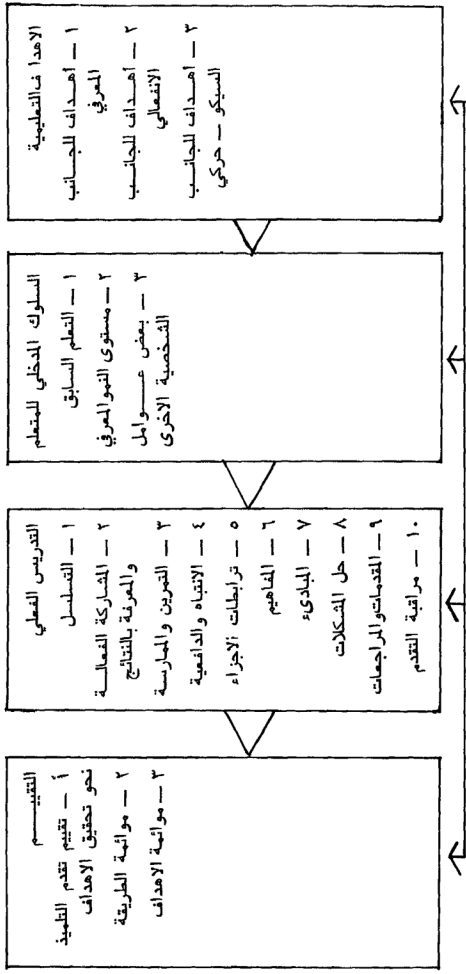 الاهداف التعليمية
١ – أهداف للجانب
المعرفي
٢ – أهداف للجانب
الانفعالي
٣ – أهداف للجانب
السيكو – حركي
السلوك المدخلي للمتعلم
١ – التعلم السابق
٢ – مستوى النمو المعرفي
٣ – بعض عوامل
الشخصية الاخرى
التدريس الفعلي
١ – التسلسل
٢ – المشاركة الفعالة
٣ – التمرين والممارسة
والمعرفة بالنتائج
٤ – الانتباه والدافعية
٥ – ترابطات الاجزاء
٦ – المفاهيم
٧ – المبادىء
٨ – حل المشكلات
٩ – المقدمات والمراجعات
١٠ – مراقبة التقدم
التقييم
أ – تقييم تقدم التلميذ
نحو تحقيق الاهداف
٢ – موائمة الطريقة
٣ – موائمة الاهداف